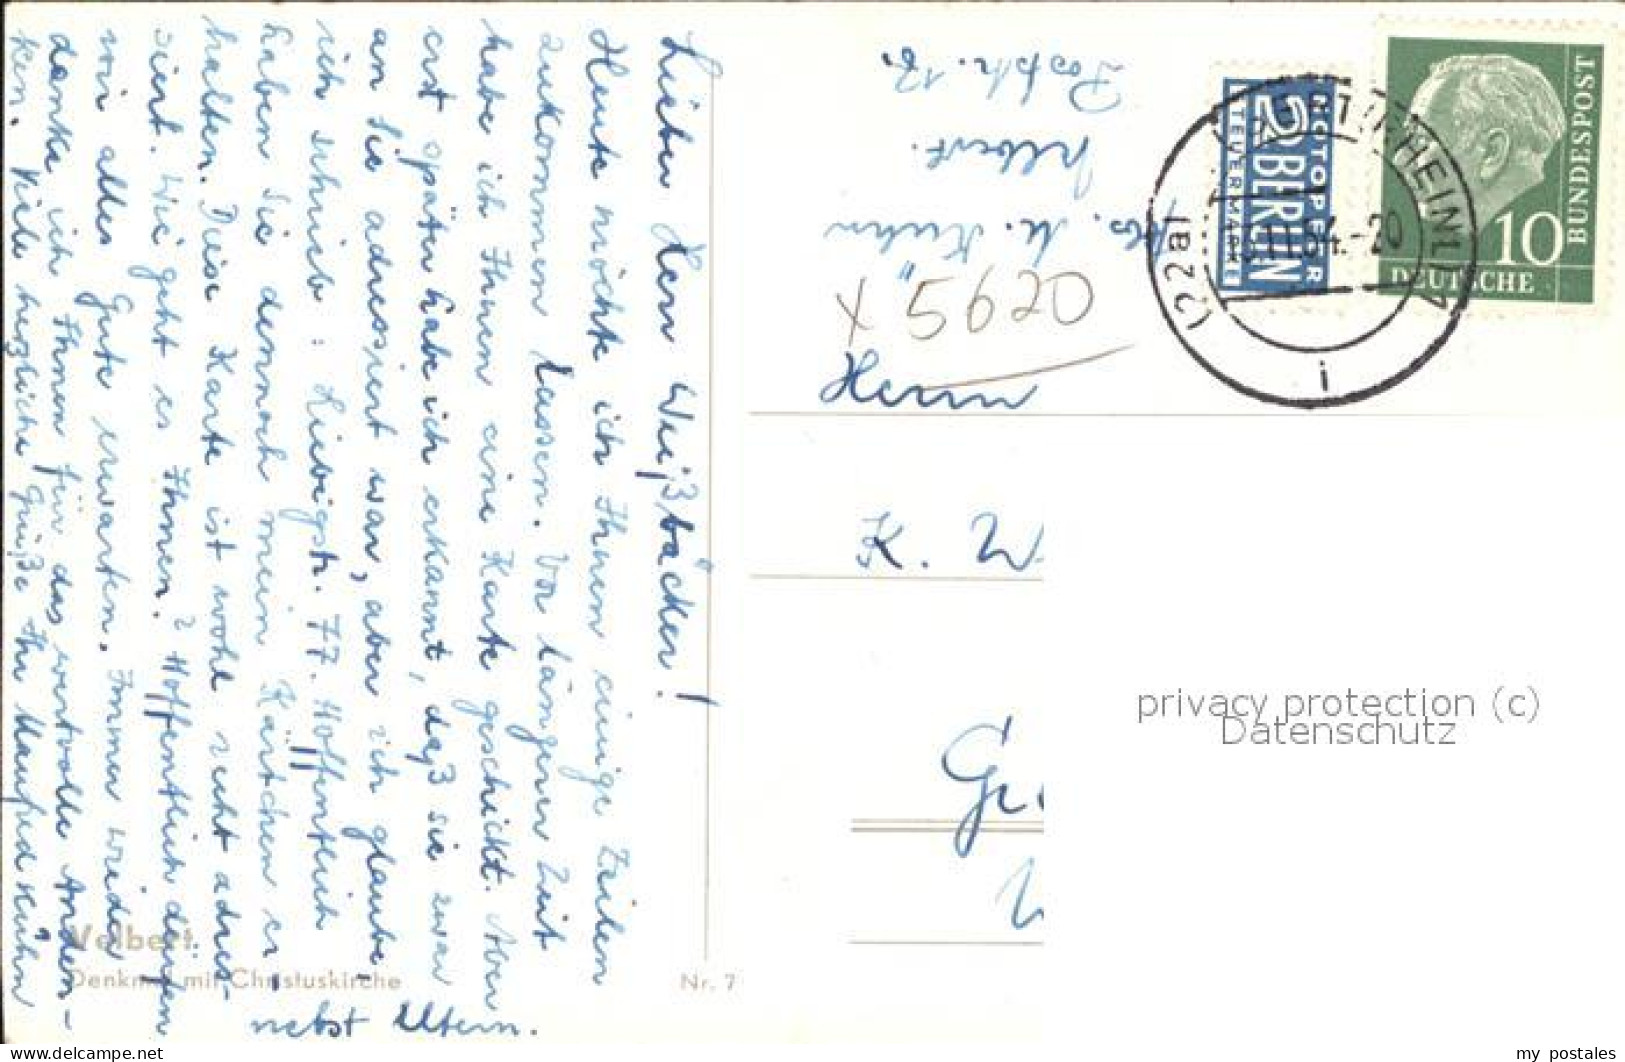 Lieber Herr Weißbäcker!
Heute möchte ich Ihnen einige Zeilen
zukommen lassen. Vor längerer Zeit
habe ich Ihnen eine Karte geschickt. Aber
erst später habe ich erkannt, daß sie zwar
an Sie adressiert war, aber ich glaube,
ich schrieb: Liebigstr. 77. Hoffentlich
haben Sie dennoch mein Kärtchen er-
halten. Diese Karte ist wohl recht adres-
siert. Wie geht es Ihnen? Hoffentlich dürfen
wir alles Gute erwarten. Immer wieder
danke ich Ihnen für das wertvolle Anden-
ken. Viele herzliche Grüße Ihr Manfred Kühn
nebst Eltern.
Velbert
Denkmal mit Christuskirche
Nr. 7
Abs. M. Kühn
Velbert.
Poststr. 18.
x 5620
Herrn
K. W
G
W
NOTOPFER
2 BERLIN
STEUERMARKE
DEUTSCHE
BUNDESPOST
10
(22a)
11.54.-20
i
privacy protection (c)
Datenschutz
www.delcampe.net
my_postales